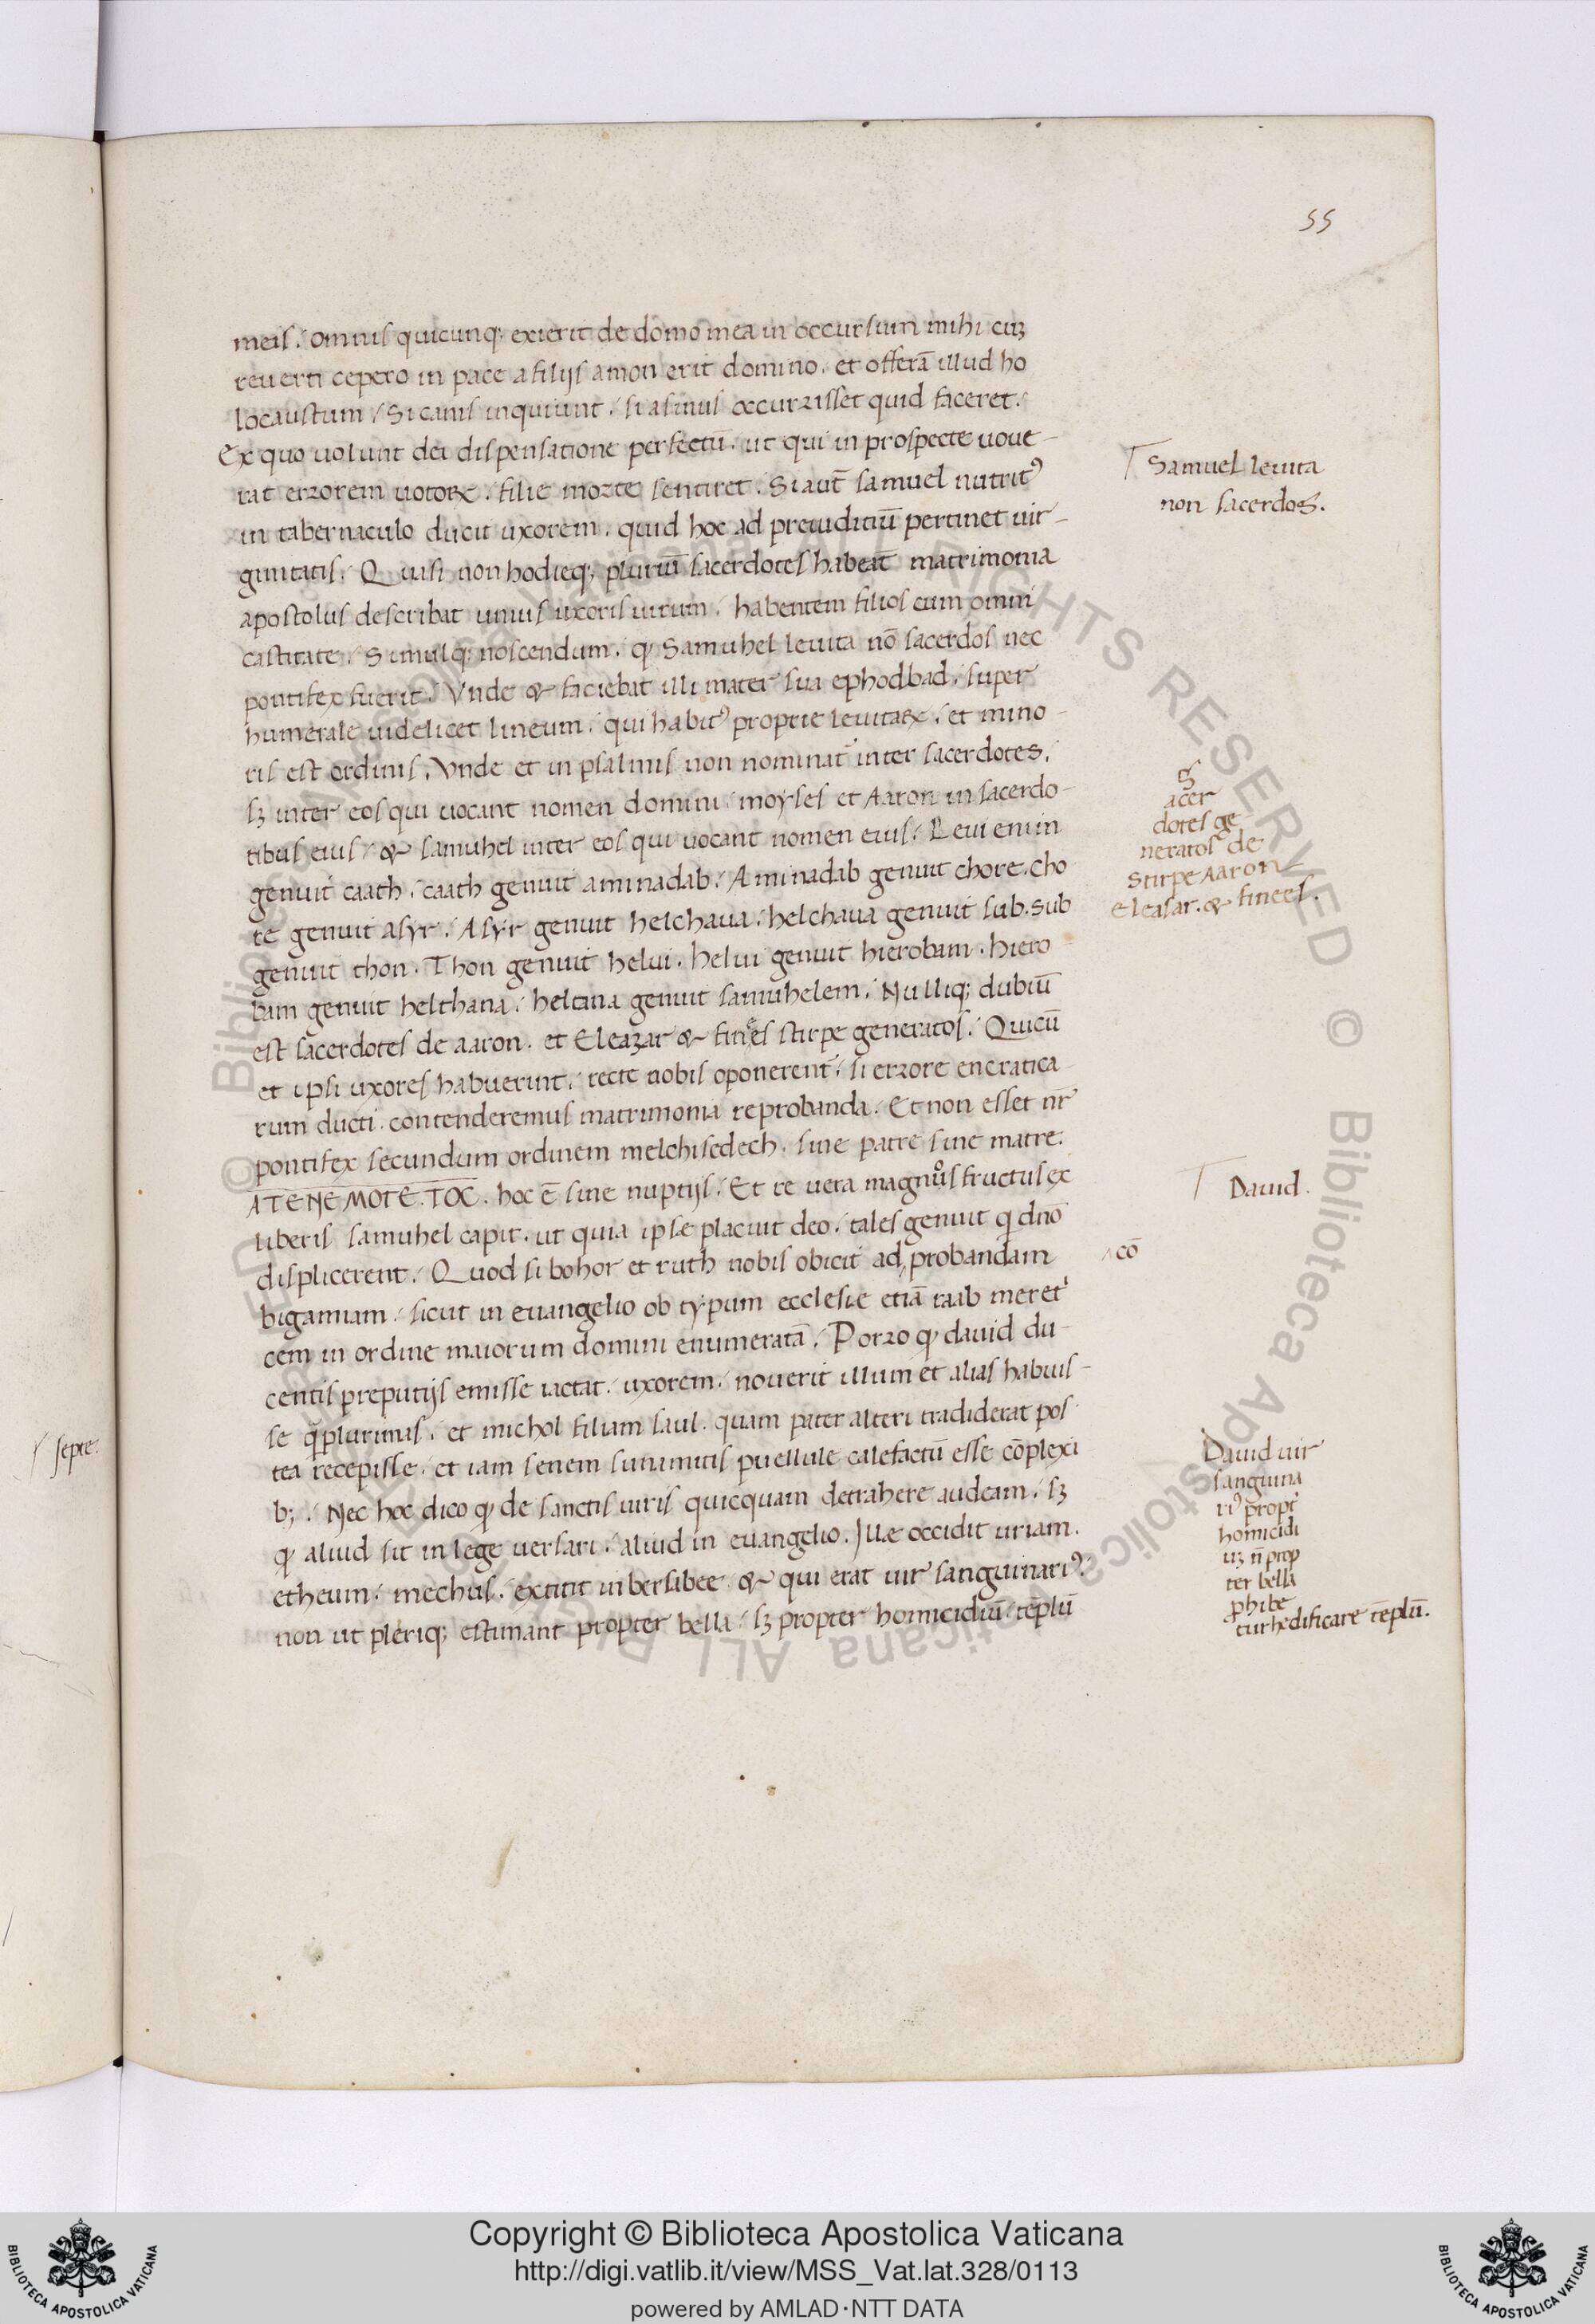 55
meis. Omnis quicunq; exierit de domo mea in occursum mihi cuʒ
reuerti cepero in pace a filijs amon erit domino. et offerā illud ho
locaustum. Si canis inquiunt. si asinus occurrisset quid faceret.
Ex quo uolunt dei dispensatione perfectū. ut qui in prospecte uoue-
rat errorem uotoꝝ. filie morte sentiret. Si aut̄ samuel nutritꝰ
in tabernaculo ducit uxorem. quid hoc ad preiuditiū pertinet uir-
ginitatis. Quasi non hodieq; pluriū sacerdotes habeāt matrimonia
apostolus describat unius uxoris uirum. habentem filios cum omni
castitate. Simulq; noscendum. ꝙ Samuhel leuita nō sacerdos nec
pontifex fuerit. Vnde & faciebat illi mater sua ephodbad. super
humerale uidelicet lineum. qui habitꝰ proprie leuitaꝝ. et mino-
ris est ordinis. Vnde et in psalmis non nominat̄ inter sacerdotes.
sʒ inter eos qui uocant nomen domini. moyses et Aaron in sacerdo-
tibus eius. & samuhel inter eos qui uocant nomen eius. Leui enim
genuit caath. caath genuit aminadab. Aminadab genuit chore. cho
re genuit asyr. Asyr genuit helchaua. helchaua genuit sub. sub
genuit thon. Thon genuit helui. helui genuit hierobam. hiero
bam genuit helchana. helcana genuit samuhelem. Nulliq; dubiū
est sacerdotes de aaron. et Eleazar & finees stirpe generatos. Qui cū
et ipsi uxores habuerint. recte nobis oponerent̄. si errore encratica-
rum ducti. contenderemus matrimonia reprobanda. Et non esset nr̄
pontifex secundum ordinem melchisedech. sine patre sine matre.
ATENEMOTE.TOC. hoc ē sine nuptijs. Et re uera magnos fructus ex
liberis samuhel capit. ut quia ipse placuit deo. tales genuit q dn̄o
displicerent. Quod si bohor et ruth nobis obicit ad probandam
bigamiam. sicut in euangelio ob typum ecclesie etiā raab meretͥ
cem in ordine maiorum domini enumeratā. Porro ꝙ dauid du-
centis preputijs emisse iactat. uxorem. nouerit illum et alias habuis-
se q̄plurimas. et michol filiam saul. quam pater alteri tradiderat pos
tea recepisse. et iam senem sunimitis puellule calefactū esse cōplexi
b;. Nec hoc dico ꝙ de sanctis uiris quicquam detrahere audeam. sʒ
ꝙ aliud sit in lege uersari. aliud in euangelio. Illæ occidit uriam.
etheum. mechus. extitit in bersabee & qui erat uir sanguinariꝰ.
non ut pleriq; estimant propter bella. sʒ propter homicidiū. tēplū
Samuel leuita
non sacerdos.
S
acer
dotes ge
neratos de
stirpe Aaron
Eleasar. & finees.
Dauid.
cō
Dauid uir
sanguina
riꝰ propt̄
homicidi
uʒ n̄ prop
ter bella
ꝓhibe
tur hedificare tēplū.
septe.
© Biblioteca Apostolica Vaticana ALL RIGHTS RESERVED © Biblioteca Apostolica Vaticana ALL RIGHTS RESERVED
Copyright © Biblioteca Apostolica Vaticana
http://digi.vatlib.it/view/MSS_Vat.lat.328/0113
powered by AMLAD·NTT DATA
BIBLIOTECA APOSTOLICA VATICANA
BIBLIOTECA APOSTOLICA VATICANA